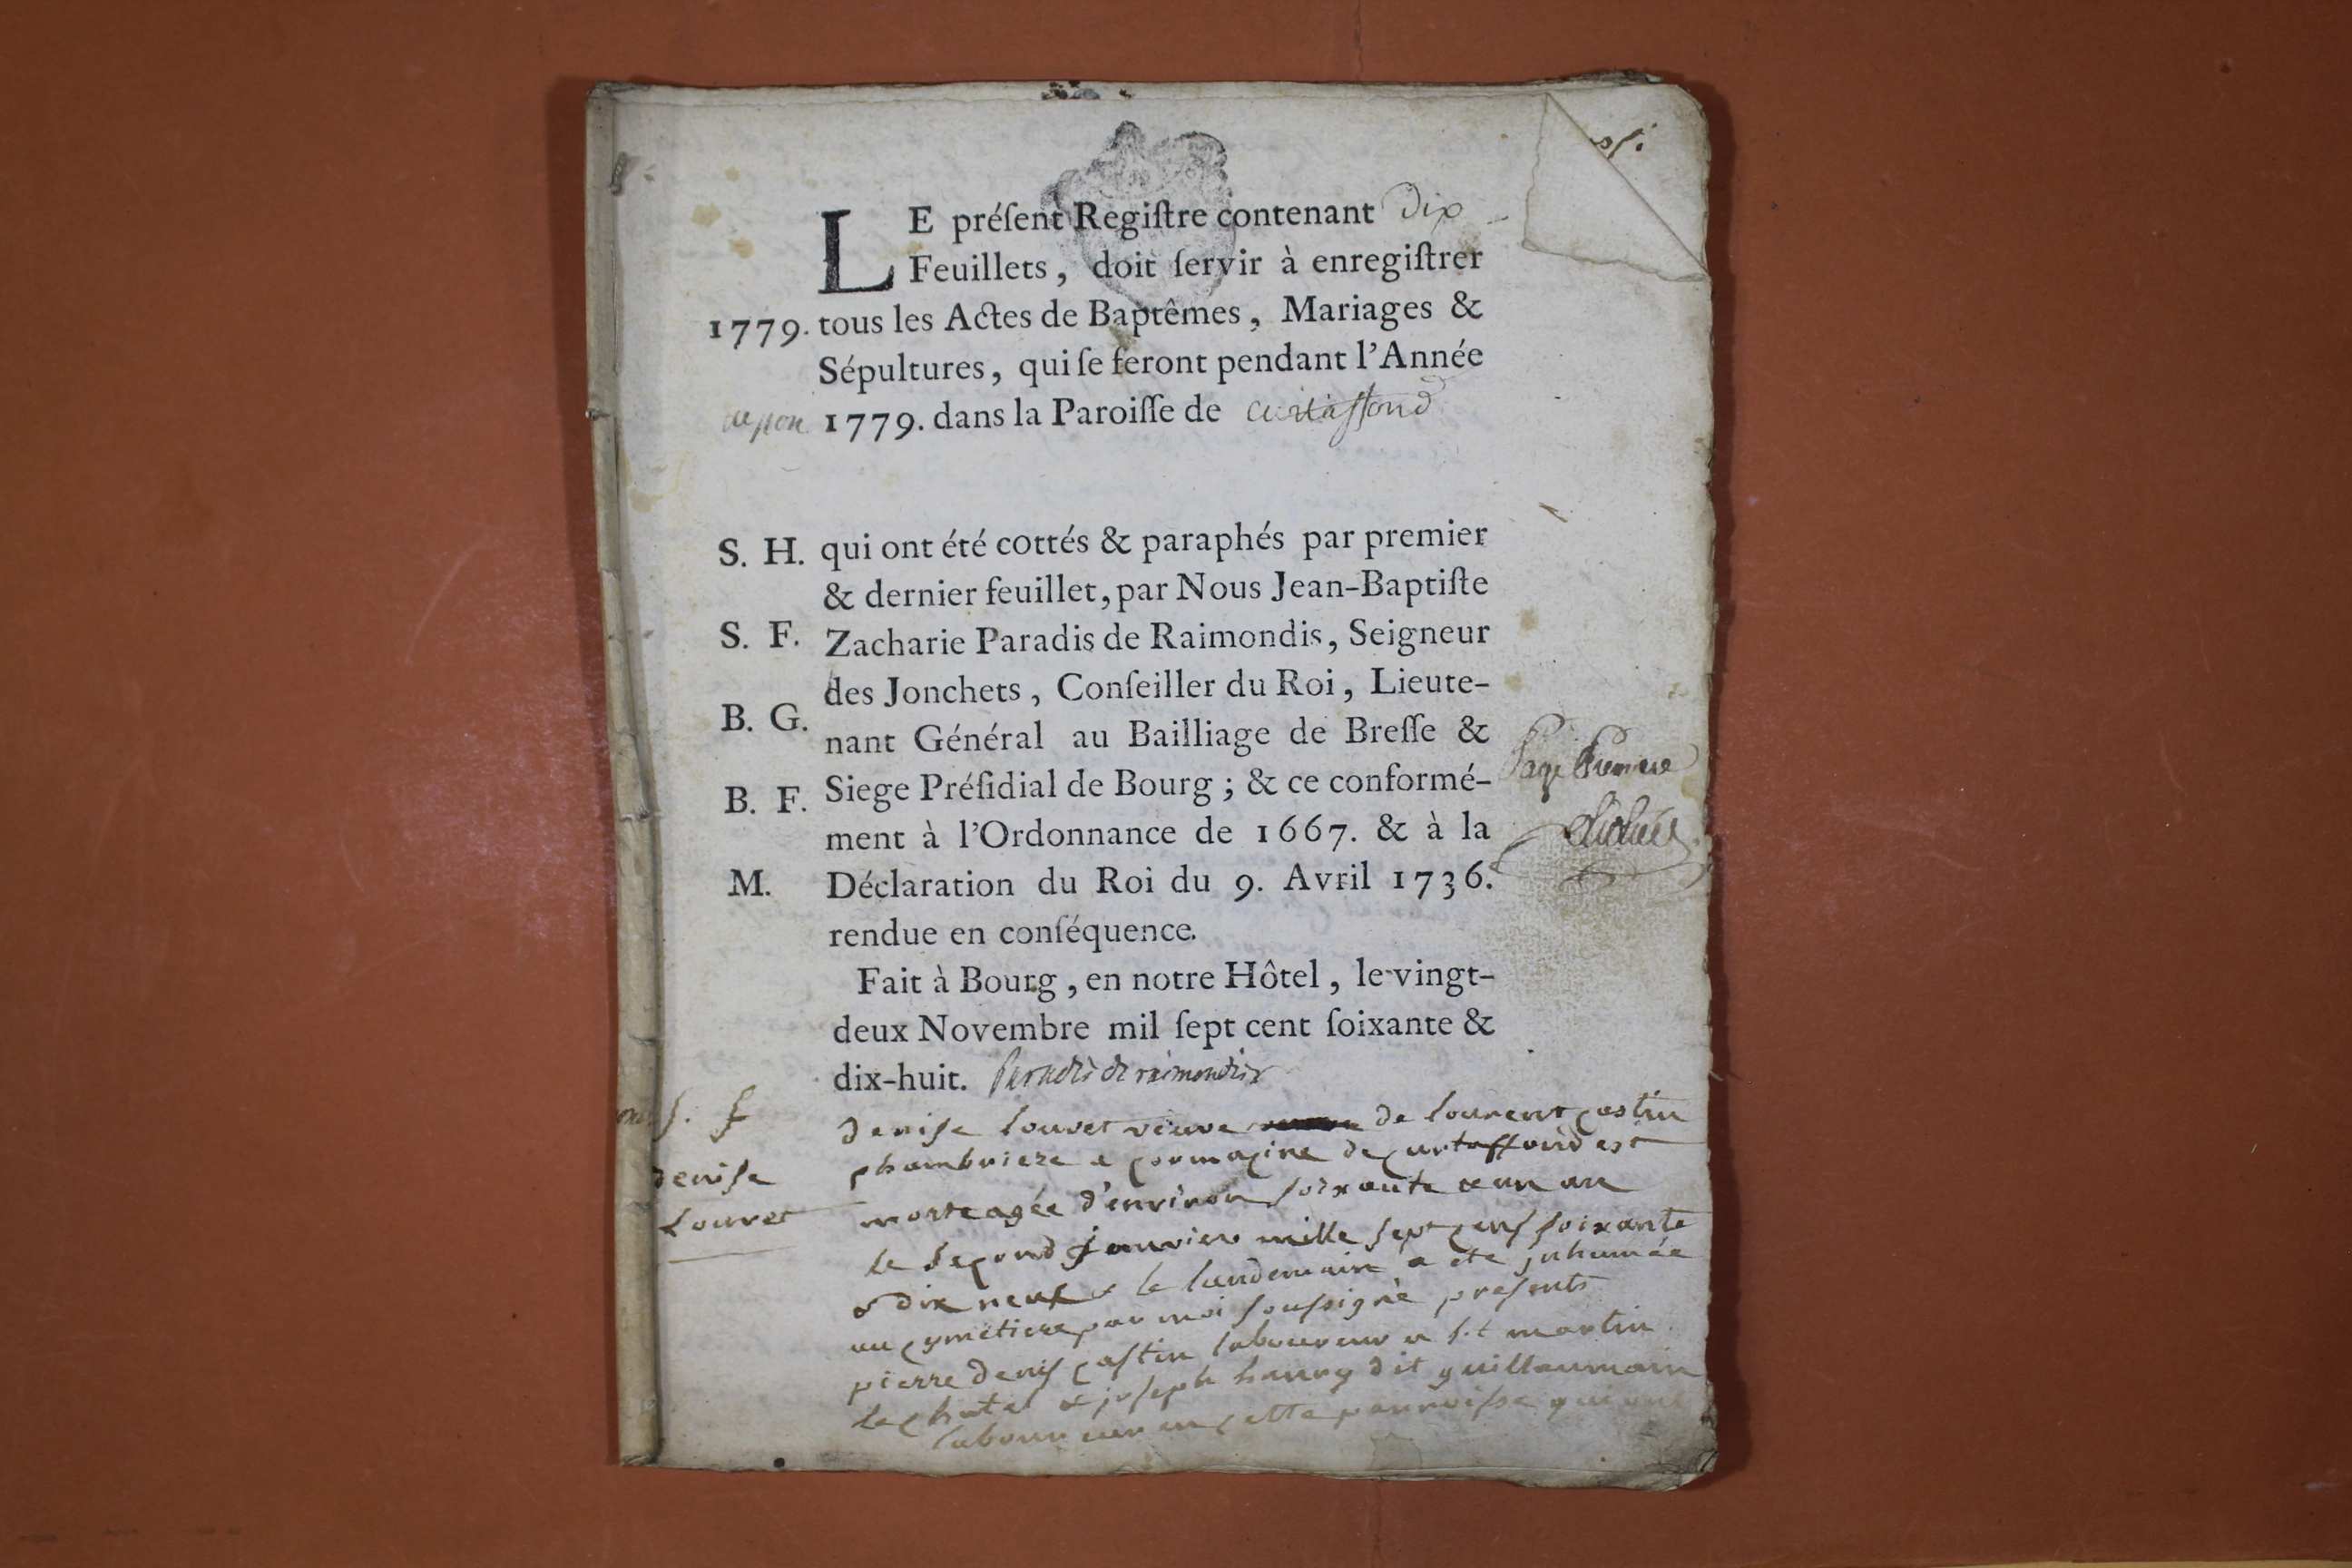 LE préſent Regiſtre contenant dix
Feuillets, doit ſervir à enregiſtrer
1779. tous les Actes de Baptêmes, Mariages &
Sépultures, qui ſe feront pendant l'Année
1779. dans la Paroiſſe de curtaffond
S. H. qui ont été cottés & paraphés par premier
& dernier feuillet, par Nous Jean-Baptiſte
S. F. Zacharie Paradis de Raimondis, Seigneur
des Jonchets, Conſeiller du Roi, Lieute-
B. G. nant Général au Bailliage de Breſſe &
B. F. Siege Préſidial de Bourg; & ce conformé-
ment à l'Ordonnance de 1667. & à la
M. Déclaration du Roi du 9. Avril 1736.
rendue en conſéquence.
Fait à Bourg, en notre Hôtel, le vingt-
deux Novembre mil ſept cent ſoixante &
dix-huit. Paradis de raimondis
Page Premiere
s. f
denise
Louvet
denise Louvet veuve de Lourent castin
chambriere a cormagine de curtaffond est
morte agée d'environ soixante & un an
le second janvier mille sept cens soixante
& dix neuf & le landemain a ete inhumée
au cymetiere par moi soussigné presents
pierre denis castin laboureur a s.t martin
le chatel & joseph henry dit guillaumain
laboureur en cette parroisse qui ont